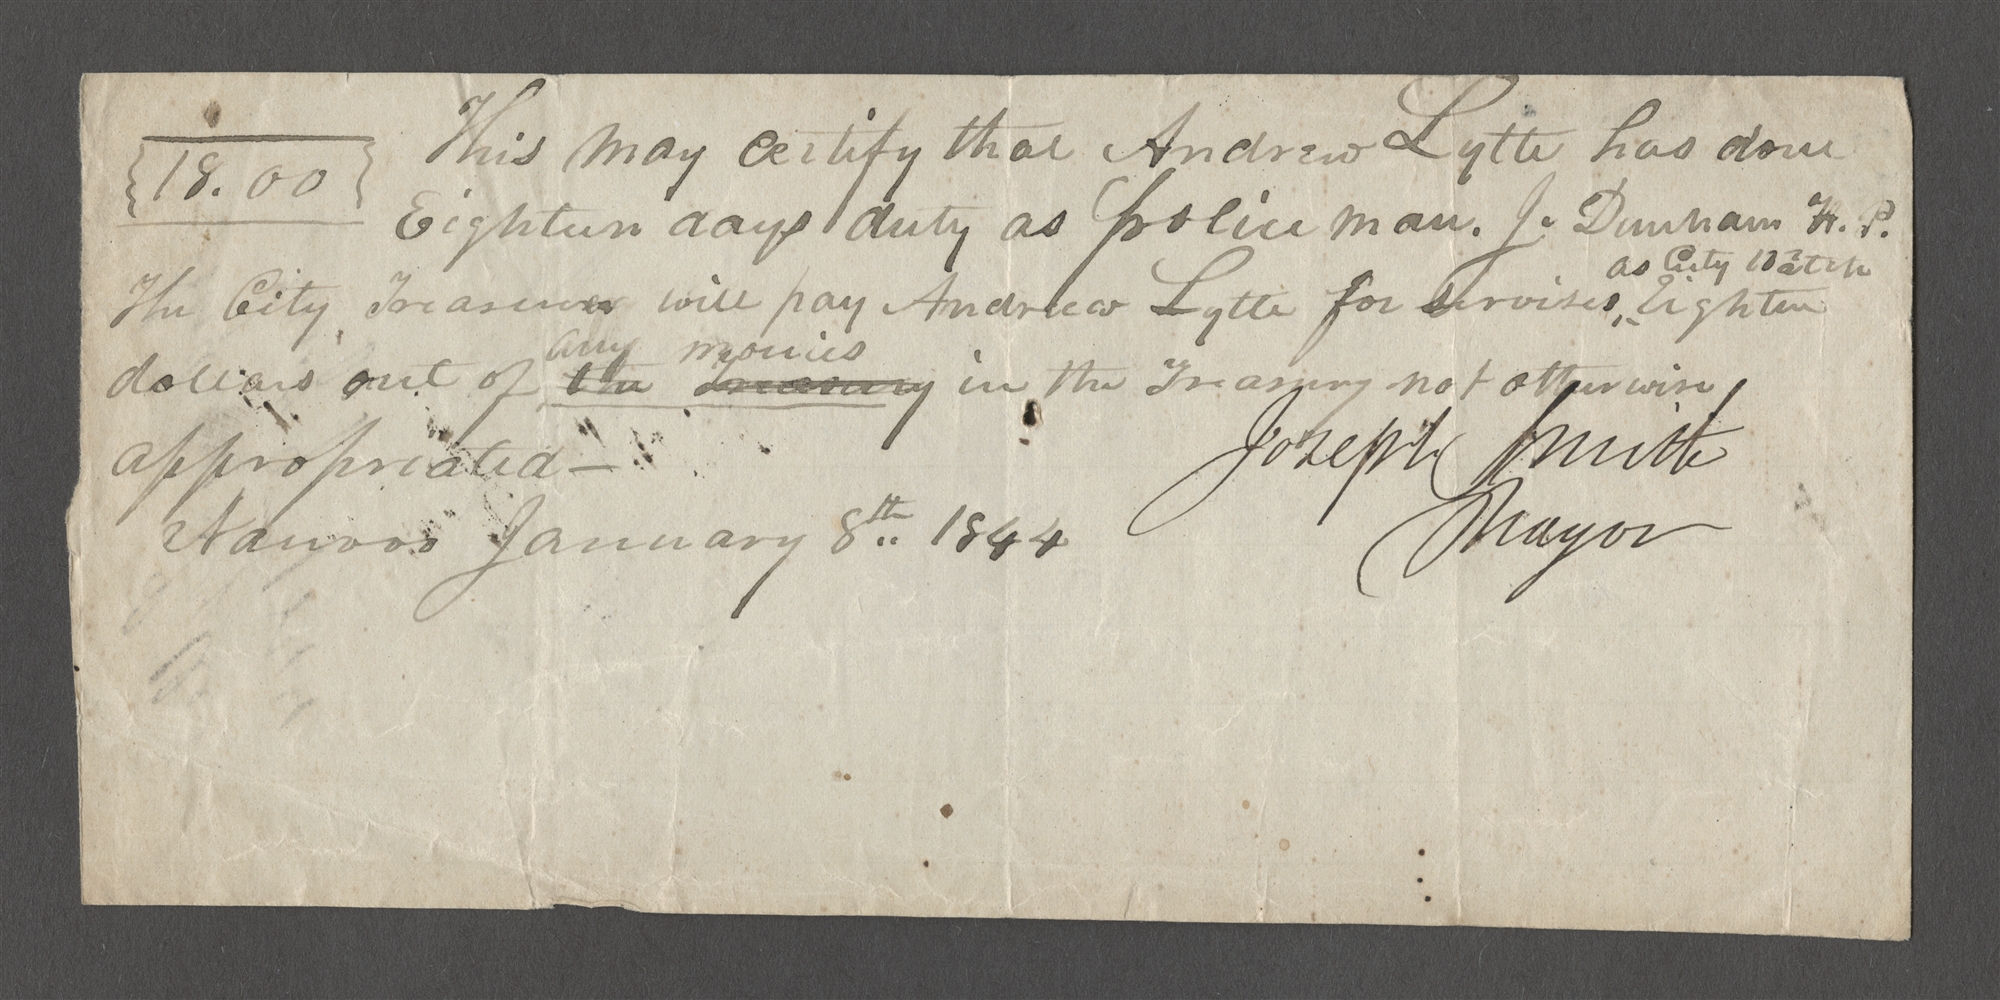 {18.00}
This may certify that Andrew Lytle has done
Eighteen days duty as police man. J. Dunham H. P.
as City Watch
The City Treasurer will pay Andrew Lytle for servises, Eighteen
any monies
dollars out of the Treasury in the Treasury not otherwise
appropriated—
Joseph Smith
Mayor
Nauvoo January 8th 1844